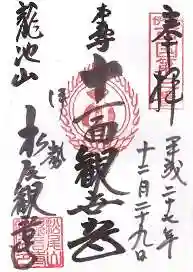 奉拝
平成二十七年
十二月二十九日
本尊
十一面観世音
伊勢
龍池山
松尾観音